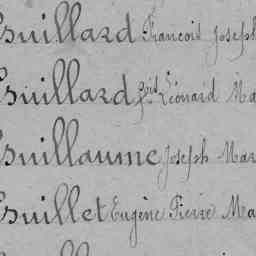 Guillard François Joseph
Guillard fois Léonard Ma
Guillaume Joseph Mar
Guillet Eugène Pierre Ma